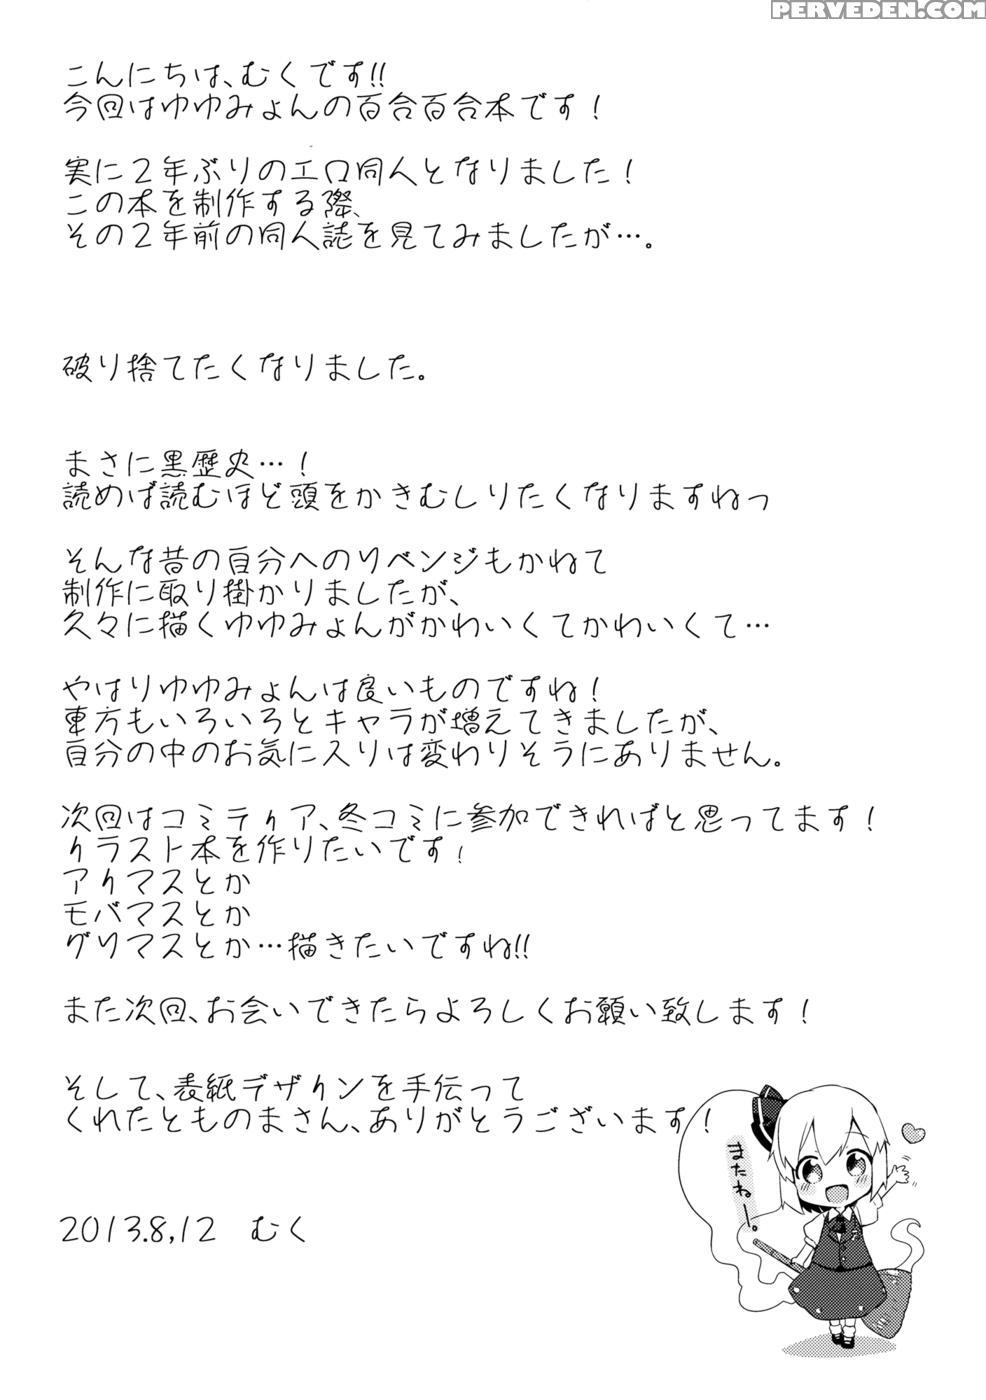 PERVEDEN.COM
こんにちは、むくです!!
今回はゆゆみょんの百合百合本です!
実に2年ぶりのエロ同人となりました!
この本を制作する際、
その2年前の同人誌を見てみましたが…。
破り捨てたくなりました。
まさに黒歴史…!
読めば読むほど頭をかきむしりたくなりますねっ
そんな昔の自分へのリベンジもかねて
制作に取り掛かりましたが、
久々に描くゆゆみょんがかわいくてかわいくて…
やはりゆゆみょんは良いものですね!
東方もいろいろとキャラが増えてきましたが、
自分の中のお気に入りは変わりそうにありません。
次回はコミティア、冬コミに参加できればと思ってます!
イラスト本を作りたいです!
アイマスとか
モバマスとか
グリマスとか…描きたいですね!!
また次回、お会いできたらよろしくお願い致します!
そして、表紙デザインを手伝って
くれたとものまさん、ありがとうございます!
またねー。
2013.8,12 むく